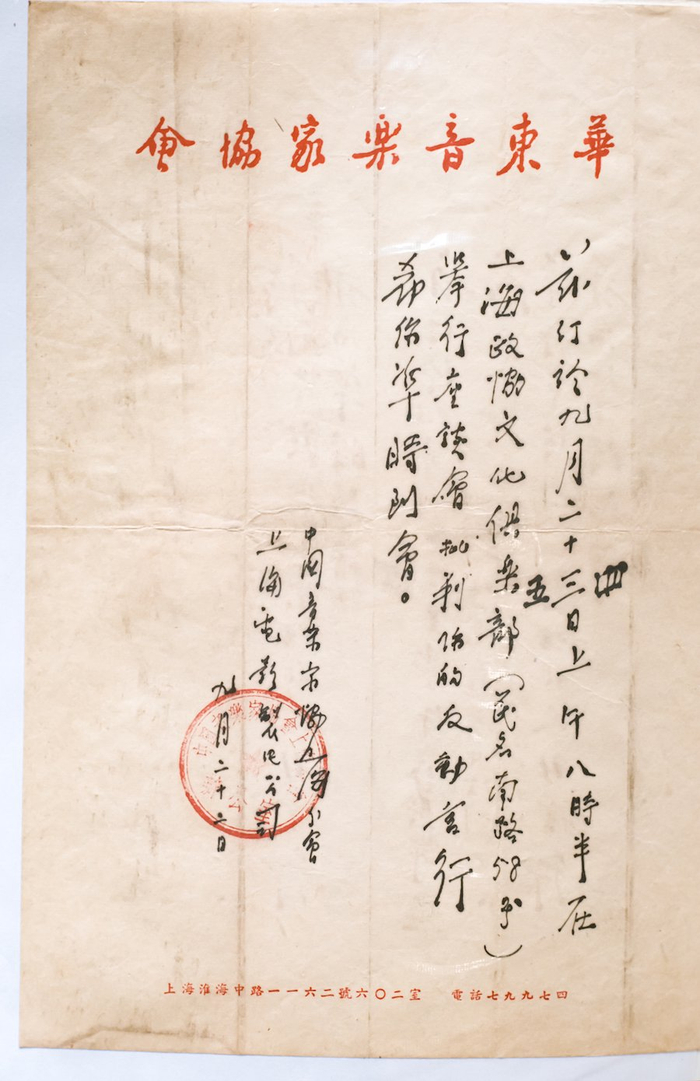 華東音樂家協會
兹订於九月二十三日上午八時半在
五
上海政協文化俱樂部（茂名南路58号）
舉行座談會批判的反動言行
希你準時到會。
中国音樂家協上海分會
上海電影製片公司
九月二十二日
上海淮海中路一一六二號六〇二室 電話七九九七四